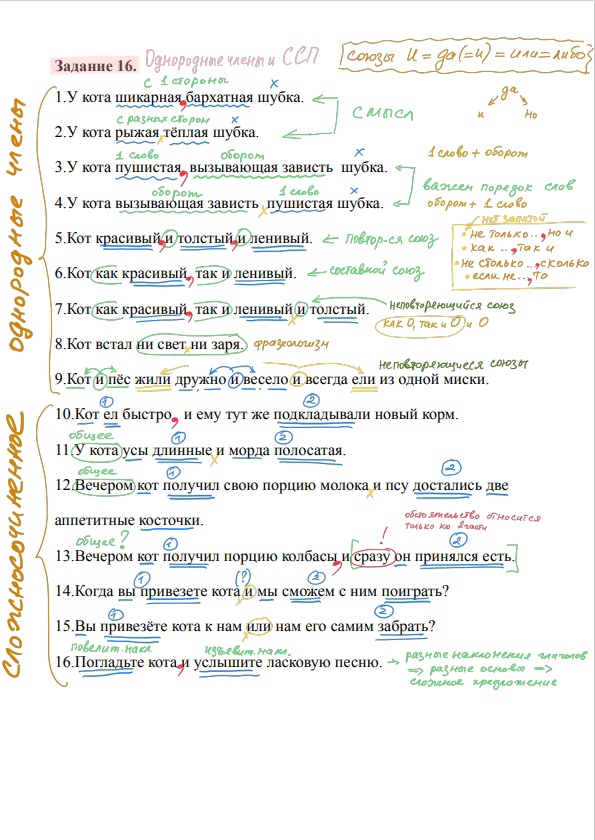 Задание 16. Однородные члены и ССП
союзы и = да(=и) = или = либо
да
и но
с 1 стороны
1.У кота шикарная, бархатная шубка.
смысл
с разных сторон
2.У кота рыжая тёплая шубка.
1 слово оборот
1 слово + оборот
3.У кота пушистая, вызывающая зависть шубка.
важен порядок слов
оборот 1 слово
оборот + 1 слово
4.У кота вызывающая зависть пушистая шубка.
нет запятой
не только.., но и
как .., так и
не столько.., сколько
если не.., то
5.Кот красивый, и толстый, и ленивый.
повтор-ся союз
6.Кот как красивый, так и ленивый.
составной союз
7.Кот как красивый, так и ленивый и толстый.
неповторяющийся союз
как О, так и О и О
8.Кот встал ни свет ни заря. фразеологизм
неповторяющиеся союзы
9.Кот и пёс жили дружно и весело и всегда ели из одной миски.
однородные члены
1 2
10.Кот ел быстро, и ему тут же подкладывали новый корм.
общее 1 2
11.У кота усы длинные и морда полосатая.
общее 1 2
12.Вечером кот получил свою порцию молока и псу достались две
аппетитные косточки.
обстоятельство относится
только ко 2 части
!
общее? 1 2
13.Вечером кот получил порцию колбасы, и сразу он принялся есть.
1 (?) 2
14.Когда вы привезете кота и мы сможем с ним поиграть?
1 2
15.Вы привезёте кота к нам или нам его самим забрать?
повелит. накл. изъявит. накл.
16.Погладьте кота, и услышите ласковую песню.
разные наклонения глаголов
разные основы
сложное предложение
сложносочиненное